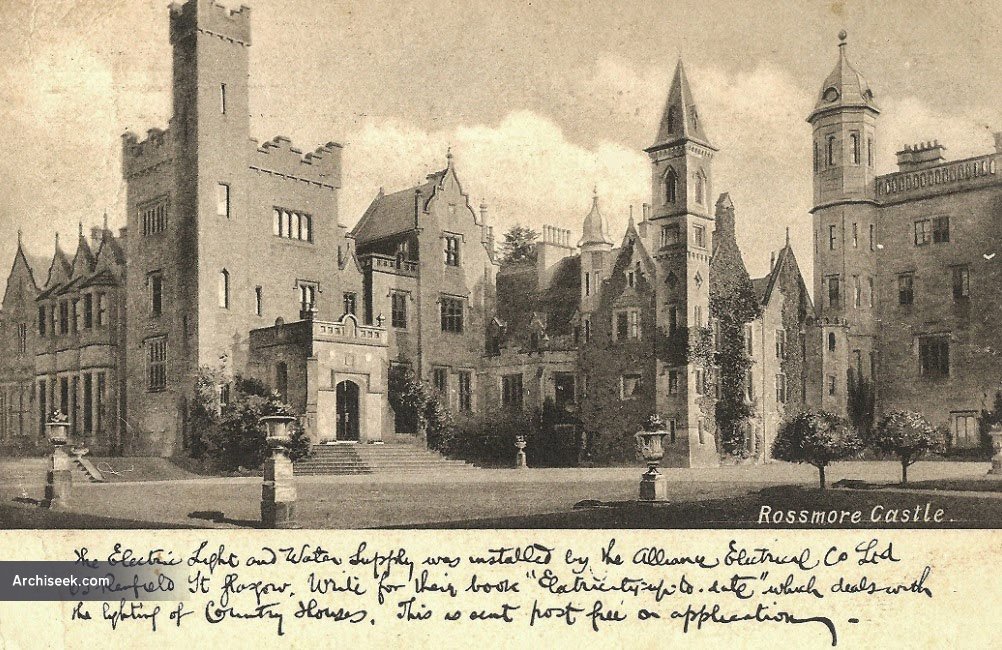 Rossmore Castle.
The Electric Light and Water Supply was installed by the Alliance Electrical Co Ltd
Archiseek.com
St Glasgow. Write for their book "Electricity-up-to-date" which deals with
the lighting of Country Houses. This is sent post free on application.